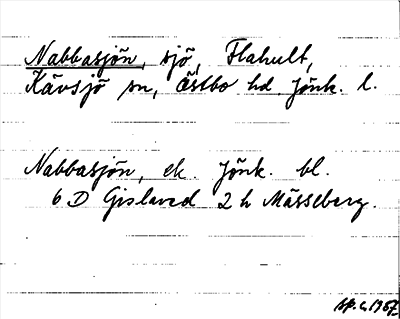 Nabbasjön, sjö, Flahult,
Kävsjö sn, Östbo hd, Jönk. l.
Nabbasjön, ek. Jönk. bl.
6 D Gislaved 2 h Mässeberg.
1967